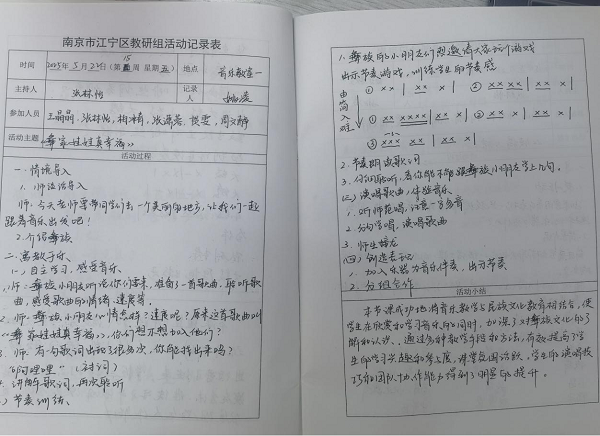 南京市江宁区教研组活动记录表
时间
2025年5月23日(第15周 星期五)
地点
音乐教室一
主持人
张林怡
记录人
参加人员
王晶晶、张林怡、
活动主题
《彝家娃娃真幸福》
活动过程
一.情境导入
1.师谈话导入
师:今天老师要带同学们去一个美丽的地方,让我们一起
跟着音乐出发吧!
2.介绍彝族
二.寓教于乐
(一)自主学习,感受音乐
1.师:彝族小朋友听说你们要来,准备了一首歌曲,聆听歌
曲,感受歌曲的情绪、速度等。
2.师:彝族小朋友心情怎样?速度呢?原来这首歌曲叫
《彝家娃娃真幸福》,你们想不想加入他们?
3.师:有句歌词出现了很多次,你能找出来吗?
"阿哩哩"(衬词)
讲解歌词,再次聆听
节奏训练、
1.彝族的小朋友们想邀请大家玩个游戏
出示节奏游戏,训练学生的节奏感
由简入难
① ×× | ×× × | ② ×××× | ×× × |
① ×× ×××× | ×× × | ② ×××× ×× | ×× × |
③ ××× ×× | ×× × |
2.节奏朗读歌词
3.仔细聆听,看你能不能跟彝族小朋友学上几句。
(三)演唱歌曲,体验音乐、
1.听师范唱,注意一字多音
2.分句学唱,演唱歌曲
3.师生接龙
(四)创造表现
1.加入乐器为音乐伴奏,出示节奏
2.分组合作
活动小结
本节课成功地将音乐教学与民族文化教育相结合,使
学生在欣赏和学习音乐的同时,加深了对彝族文化的了
解和认识、通过多种教学手段和方法,有效提高了学
生的学习兴趣和参与度,课堂氛围活跃,学生的演唱技
巧和团队协作能力得到了明显的提升。